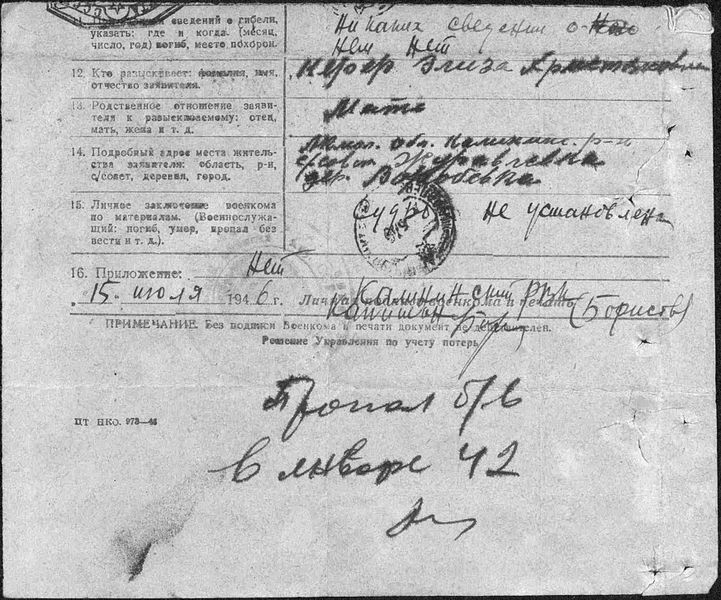 сведений о гибели,
указать: где и когда (месяц,
число, год) погиб, место похорон.
Ни каких сведений о
нем нет
12. Кто разыскивает: фамилия, имя,
отчество заявителя.
Элиза
13. Родственное отношение заяви-
теля к разыскиваемому: отец,
мать, жена и т. д.
Мать
14. Подробный адрес места житель-
ства заявителя: область, р-н,
с/совет, деревня, город.
обл. Калинин. р-н
Журавлевка
дер. Воробьевка
15. Личное заключение военкома
по материалам. (Военнослужа-
щий: погиб, умер, пропал без
вести и т. д.).
не установлена
16. Приложение: Нет
15 июля 1946 г. Личная подпись военкома и печать
Калининский РВК
Капитан (Борисов)
ПРИМЕЧАНИЕ. Без подписи Военкома и печати документ не действителен.
Решение Управления по учету потерь
Пропал б/в
в январе 42
ЦТ НКО. 973—46